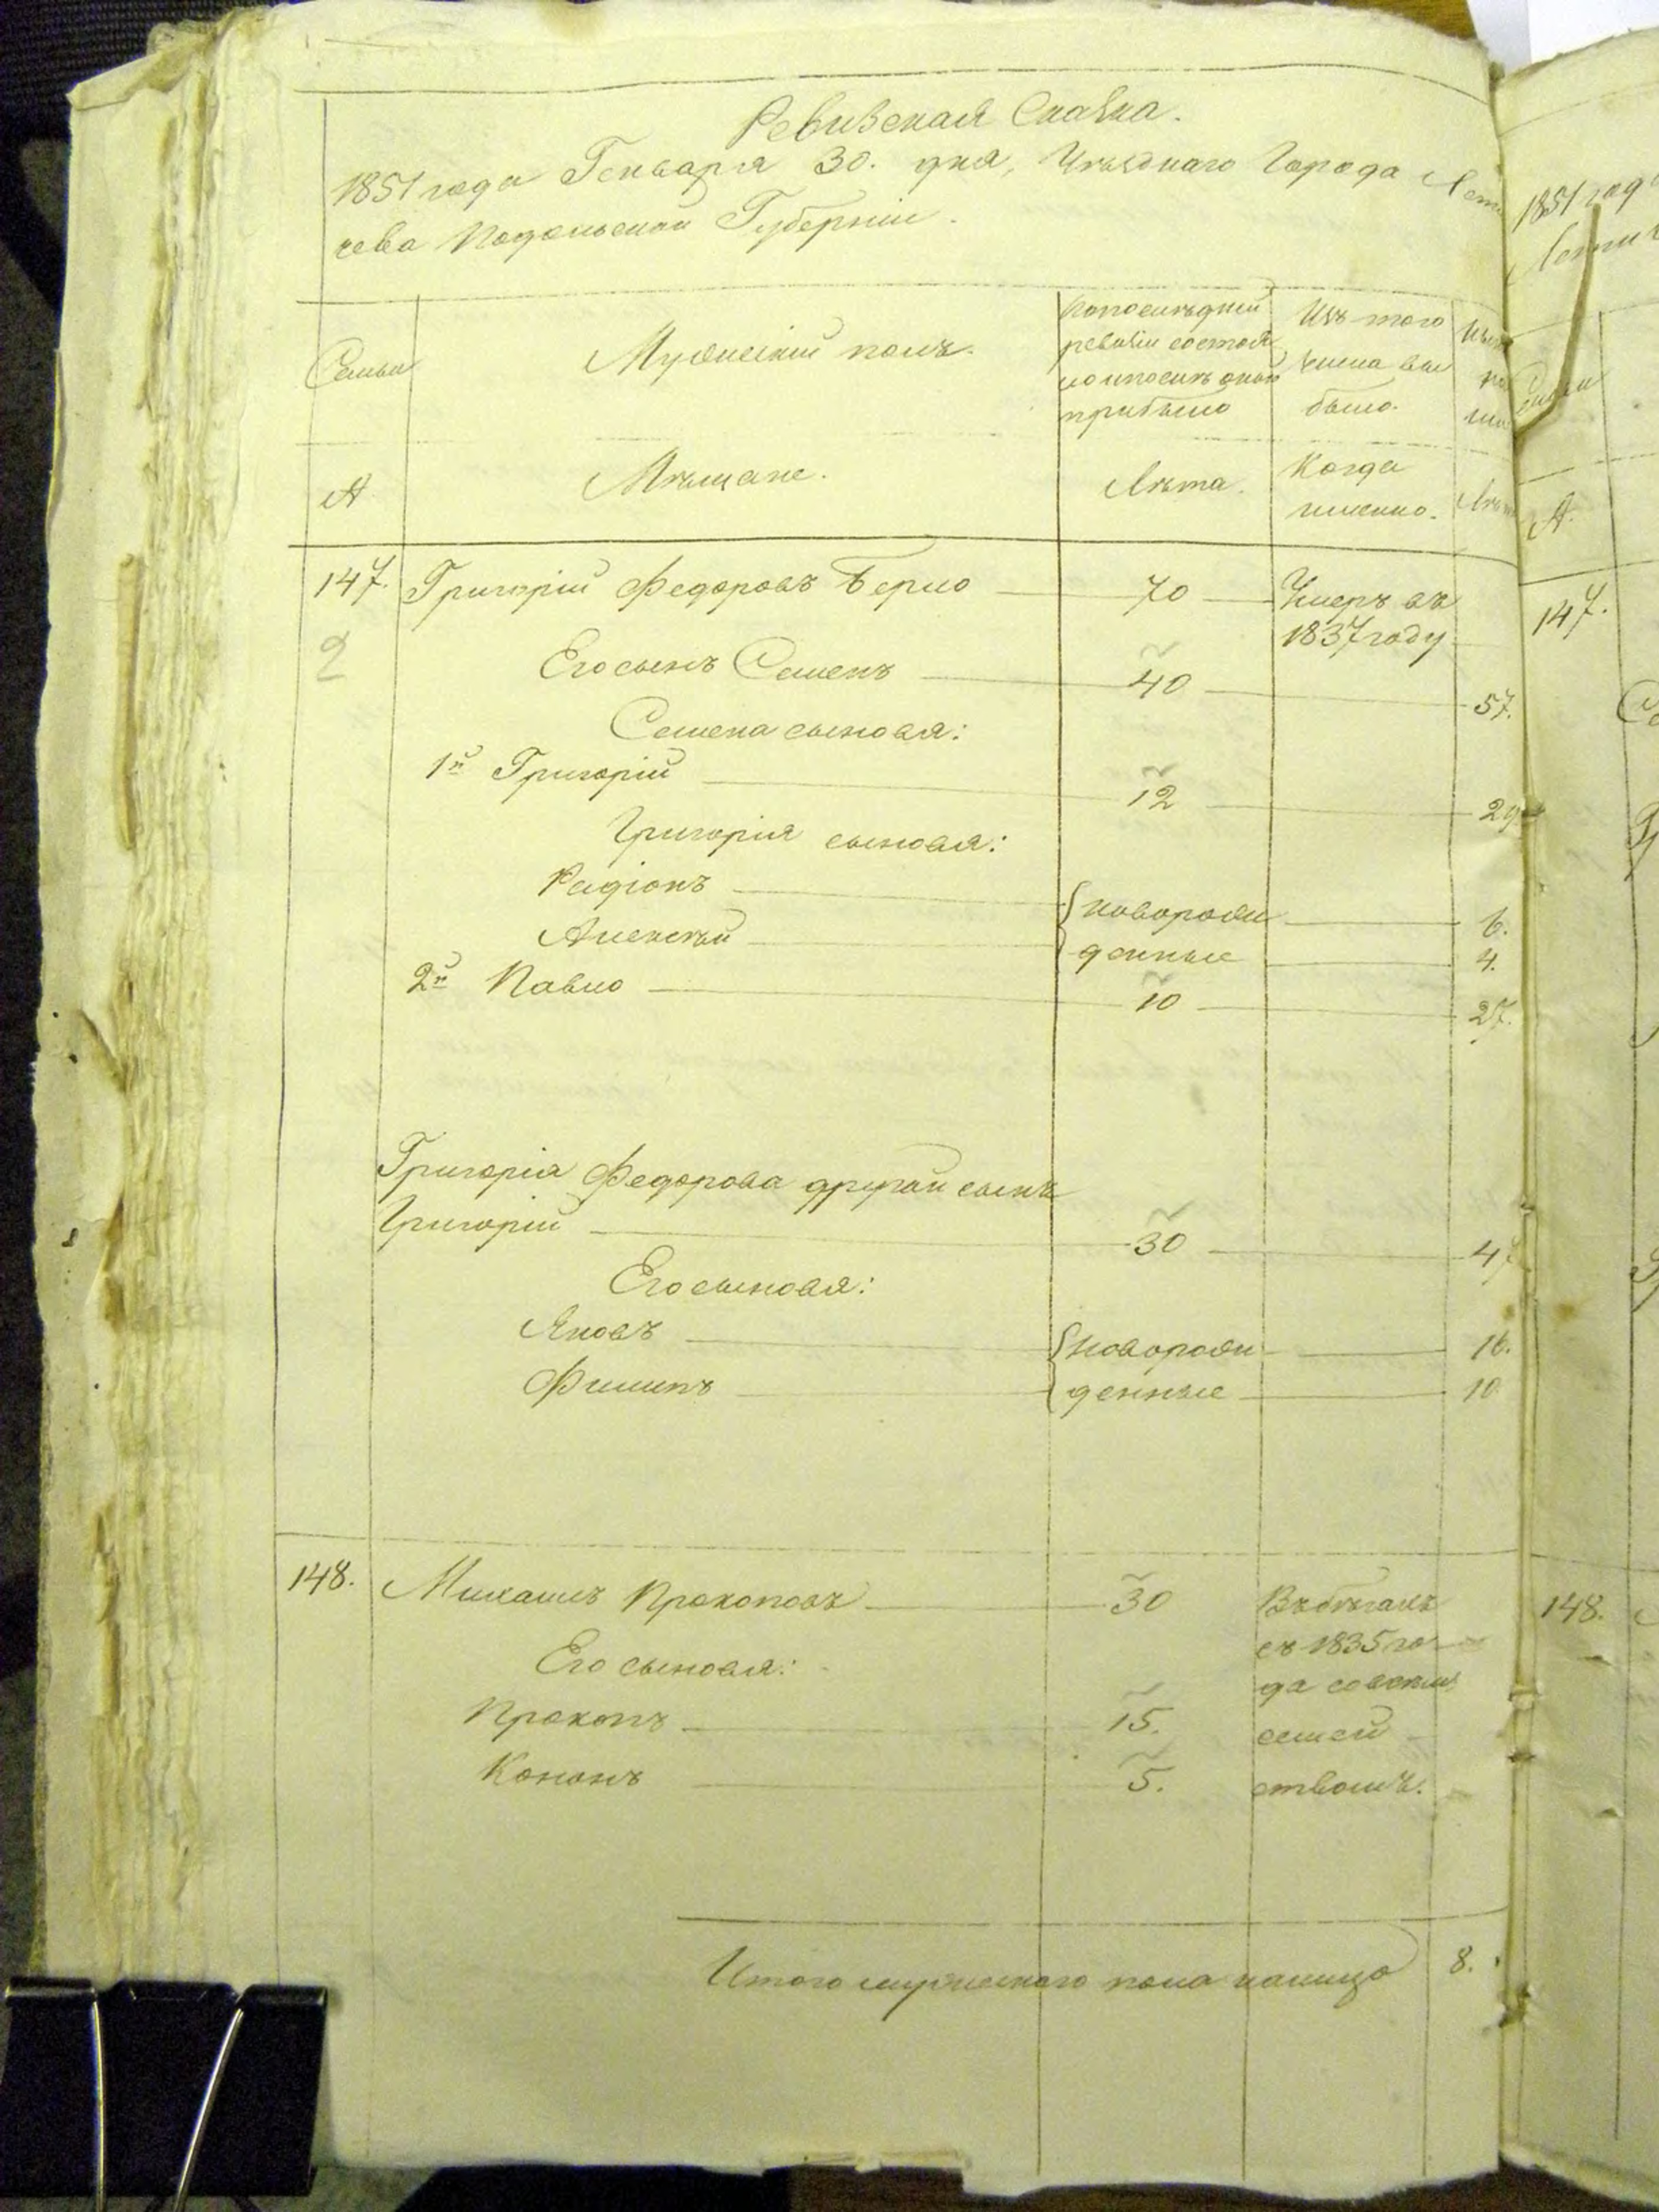 Ревизская Сказка.
1851 года Генваря 30. дня, Уѣзднаго Города Лети
чева Подольской Губерніи.
Семьи
Мужескій полъ.
По последней
ревизіи состоя
ло и после оной
прибыло
Изъ того
числа вы
было.
А
Мѣщане.
Лѣта.
Когда
именно.
Лѣта
147. Григорій Федоровъ Берло 70 Умеръ въ
1837 году
2
Его сынъ Семенъ 40 57.
Семена сыновья:
1й Григорій 12 29
Григорія сыновья:
Радіонъ новорож 6.
Алексѣй денные 4.
2й Павло 10 27.
Григорія Федорова другой сынъ
Григорій 30 47
Его сыновья:
Яковъ новорож 16.
Филипъ денные 10
148. Михаилъ Прокоповъ 30 Въ бѣгахъ
съ 1835 го
Его сыновья:
да со всѣмъ
Прокопъ 15. семей
Кононъ 5. ствомъ.
Итого мужескаго пола налицо 8.
1851 год
Летич
А.
147.
148.